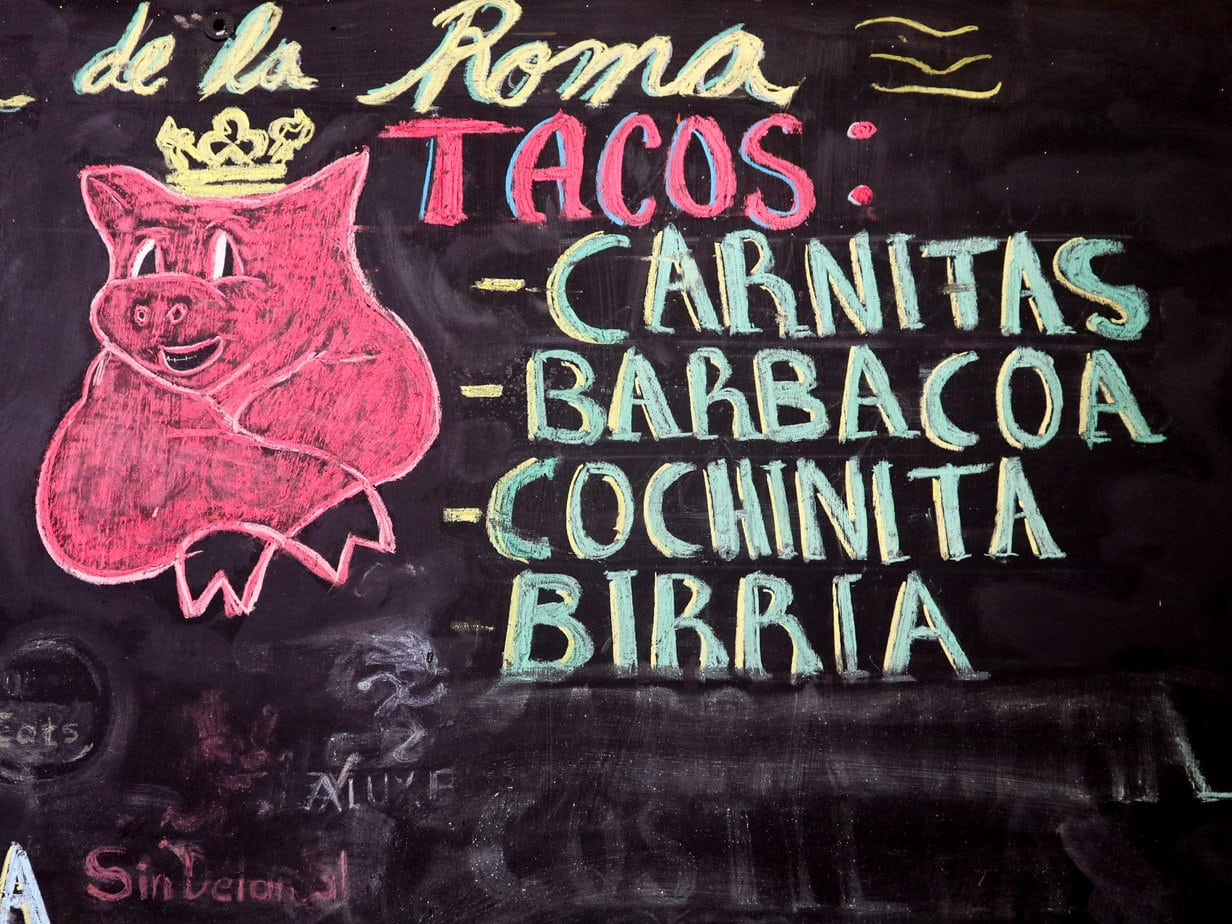 de la Roma
TACOS:
- CARNITAS
- BARBACOA
- COCHINITA
- BIRRIA
Eats
COSTI
A